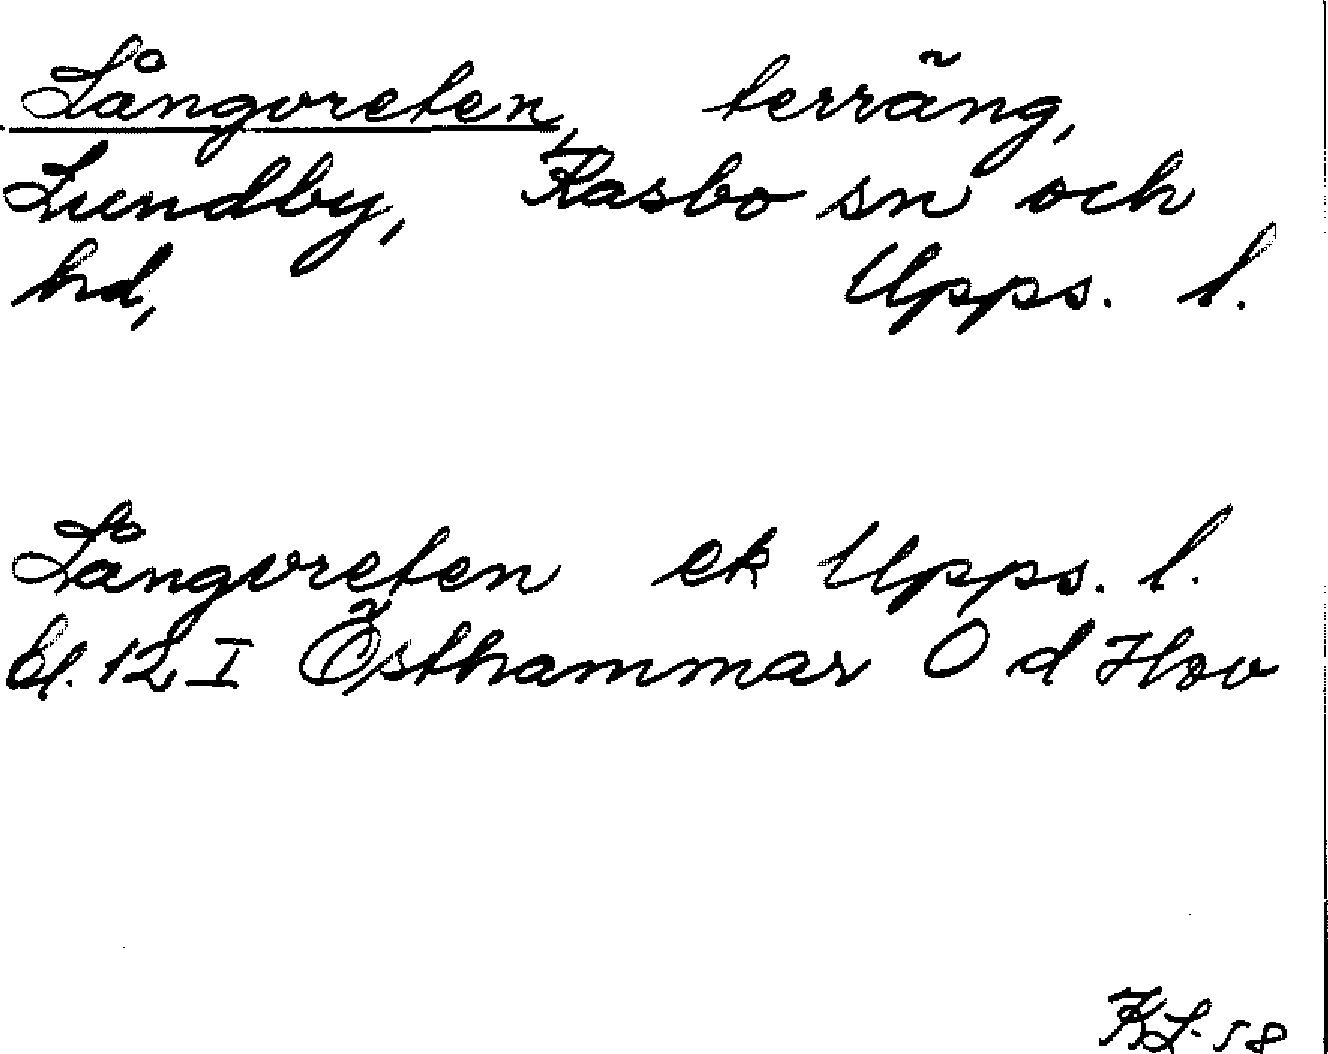 Långvreten, terräng,
Lundby, Rasbo sn och
hd, Upps. l.
Långvreten ek Upps. l.
bl. 12 I Östhammar O d Hov
KL. 58